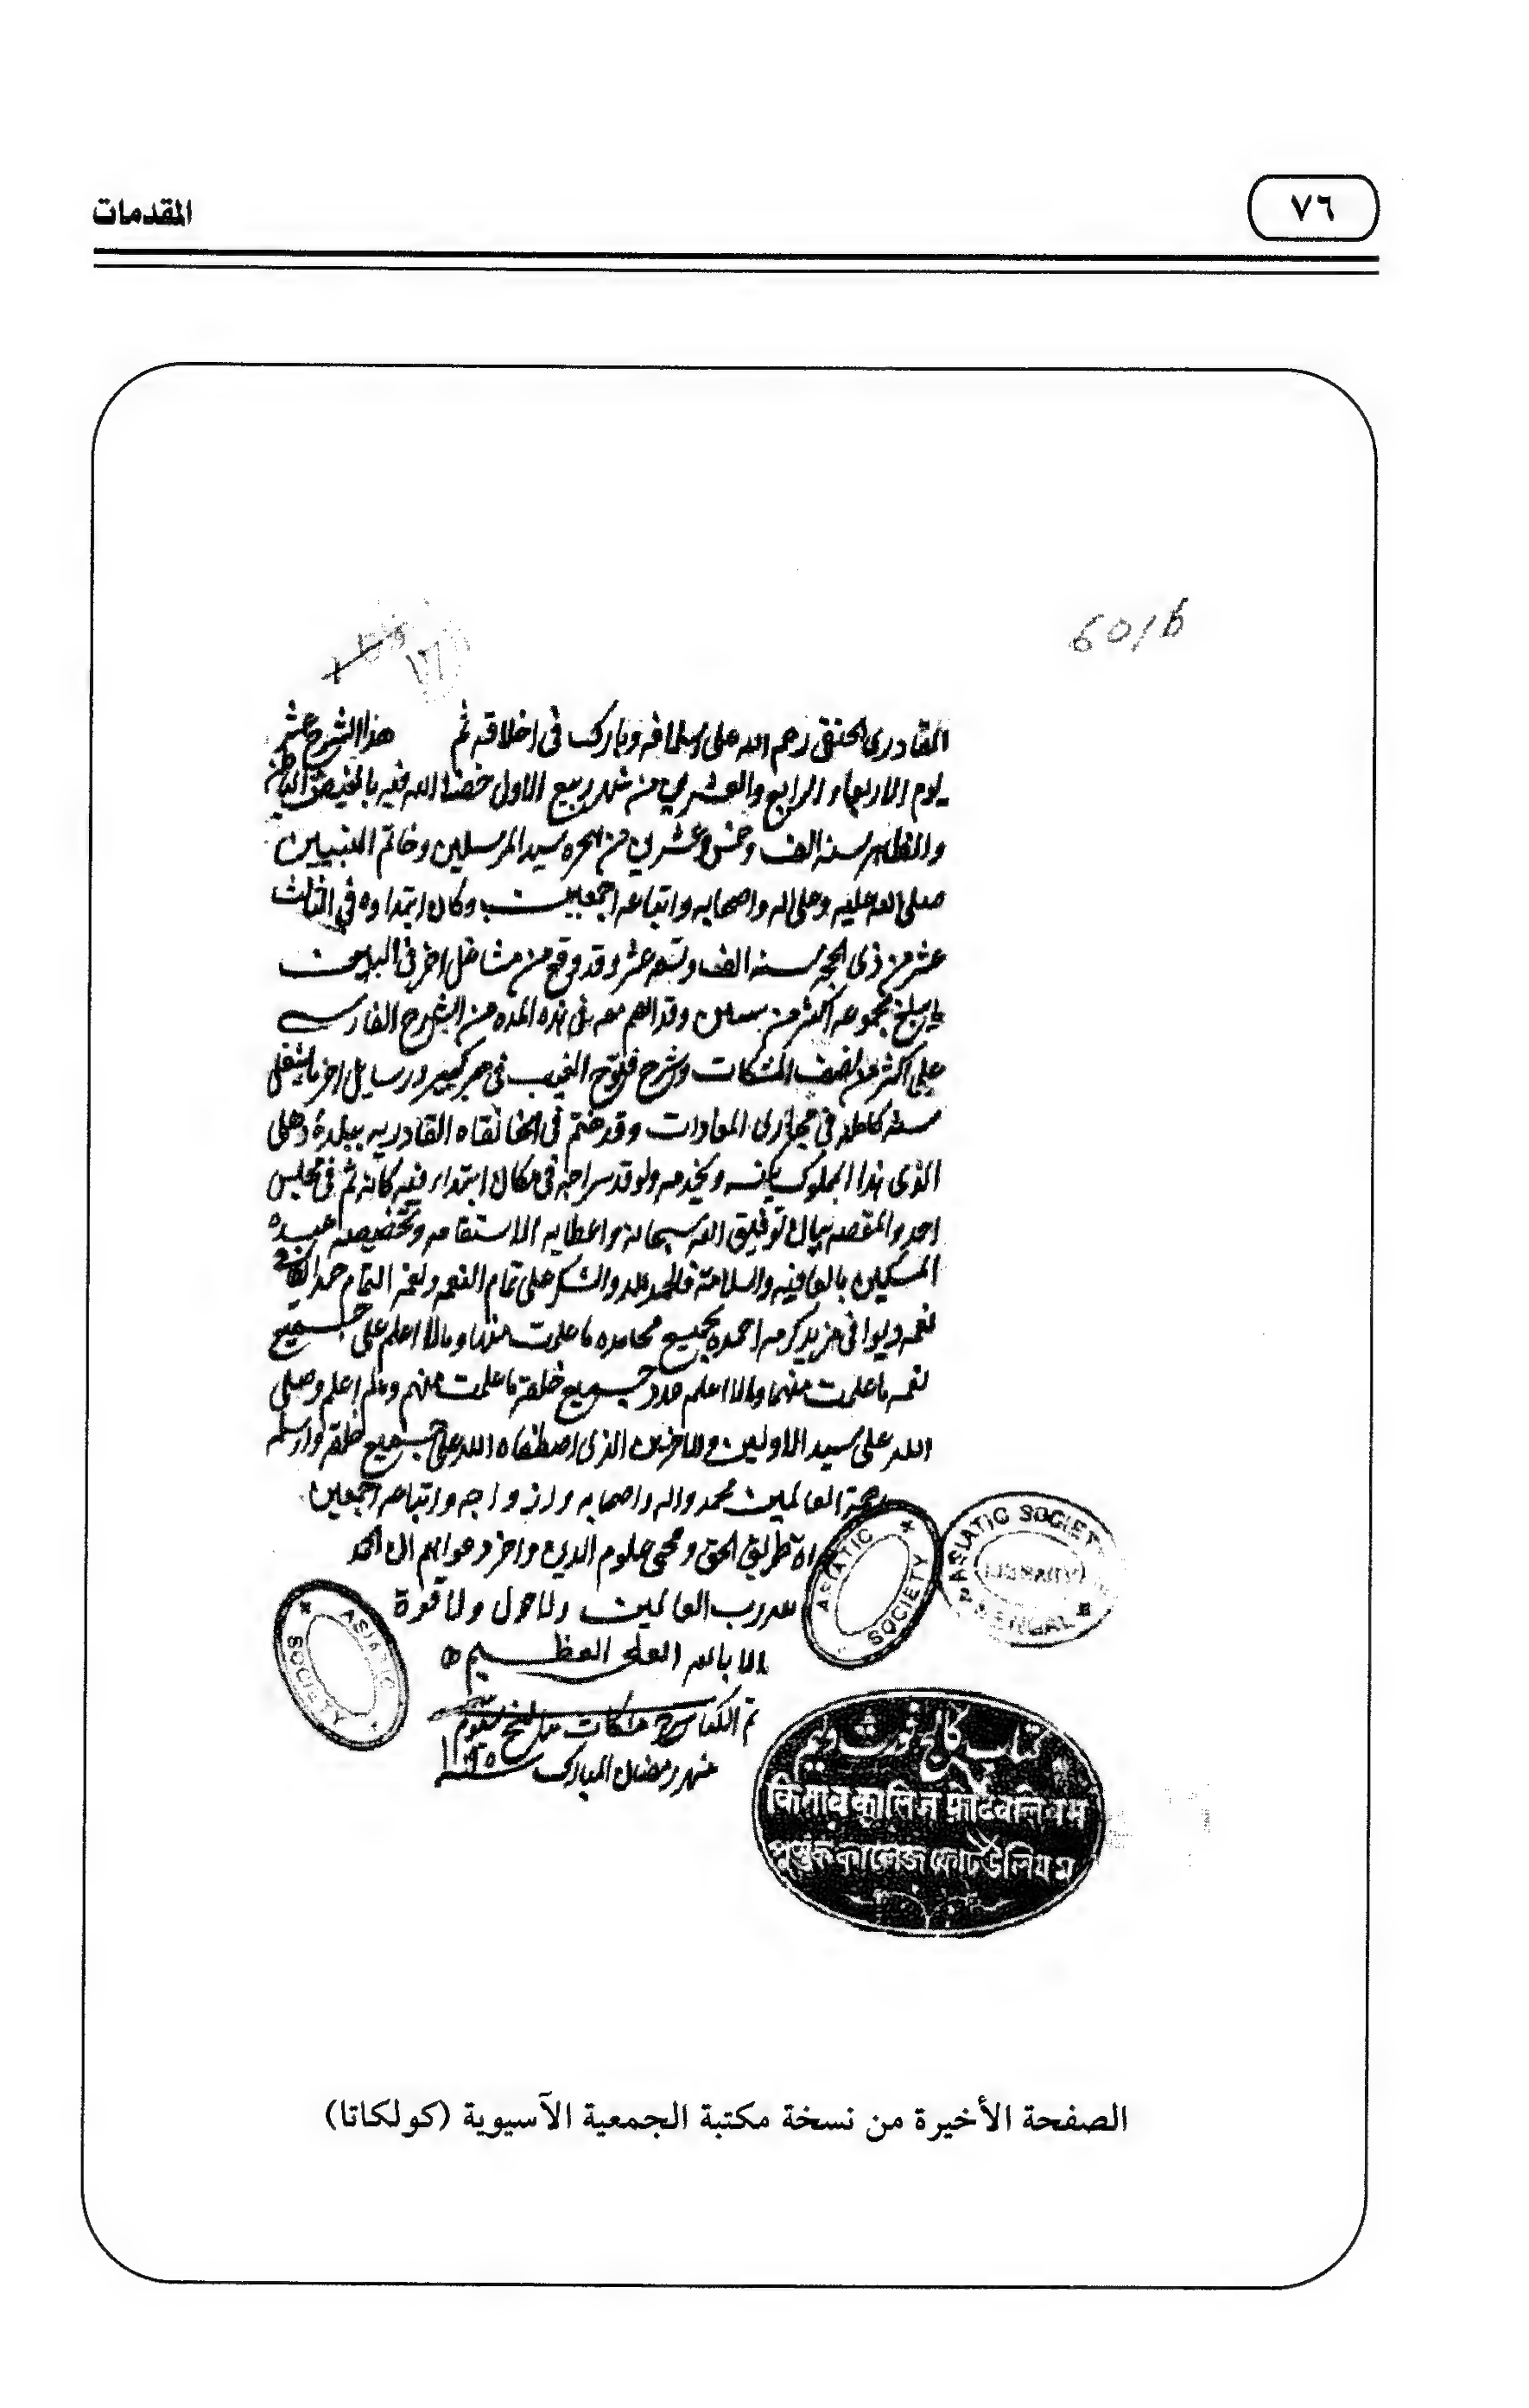 المقدمات
٧٦
601b
القادري الحنفي رحم الله على اسلافه وبارك في اخلافه ثم هذا الشرح عشر
يوم الاربعاء الرابع والعشرين من شهر ربيع الاول خصنا الله فيه بالفيض الباطن
والظاهر سنه الف وخمس وعشرين من هجره سيد المرسلين وخاتم النبيين
صلى الله عليه وعلى اله واصحابه واتباعه اجمعين وكان ابتداوه في الثالث
عشر من ذي الحجه سنه الف وتسعه عشر وقد وقع من مشاغل اخر في البين
ما يبلغ مجموعه اكثر من سنتين وقد اتم معه في هذه المده من الشرح الفارسي
على اكثر من نصف المشكات وشرح فتوح الغيب في حجر كبير ورسايل اخر ما
سنه كامله في مجاري العادات وقد ختم في الخانقاه القادريه ببلدة دهلي
الذي هذا المملوك ويخدمه ويوقد سراجه في مكان ابتداء فيه كانه ثم في مجلس
احد والمقصد بيان توفيق الله سبحانه واعطايه الاستقامه وتخصيصه عبده
المسكين بالعافيه والسلامة فالحمد لله والشكر على تمام النعم ونعم التمام حمدا
نعمه ويوافي مزيد كرمه احمده بجميع محامده ما علمت منها وما لا اعلم على جميع
نعمه ما علمت منها وما لا اعلم عدد جميع خلقه ما علمت منهم وما لم اعلم وصلى
الله على سيد الاولين والاخرين الذي اصطفاه الله على جميع خلقه وارسله
رحمة العالمين محمد واله واصحابه وازواجه واتباعه اجمعين
طريق الحق ومحيي علوم الدين واخر دعواهم ان الحمد
لله رب العالمين ولا حول ولا قوة
الا بالله العلي العظيم
تم الكتاب
شهر رمضان المبارك سنه
ASIATIC SOCIETY
ASIATIC SOCIETY LIBRARY BENGAL
ASIATIC SOCIETY
کتاب کالج فورٹ ولیم
किताब कालिज फोर्ट वलियम
الصفحة الأخيرة من نسخة مكتبة الجمعية الآسيوية (كولكاتا)